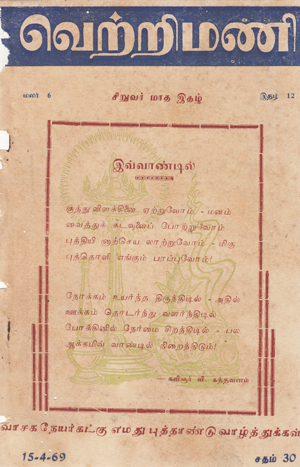 வெற்றிமணி
மலர் 6 சிறுவர் மாத இதழ் இதழ் 12
இவ்வாண்டில்
குத்துவிளக்கினை ஏற்றுவோம் - மனம்
வைத்துக் கடவுளைப் போற்றுவோம்
புத்தியி னாற்செய லாற்றுவோம் - மிகு
புத்தொளி எங்கும் பாய்ச்சுவோம்!
நோக்கம் உயர்ந்த திருந்திடில் - அதில்
ஊக்கம் தொடர்ந்து வளர்ந்திடில்
போக்கினில் நேர்மை சிறந்திடில் - பல
ஆக்கமிவ் வாண்டில் நிறைந்திடும்!
- கவிஞர் வி. கந்தவனம்
வாசகநேயர்கட்கு எமது புத்தாண்டு வாழ்த்துக்கள்
15-4-69 சதம் 30